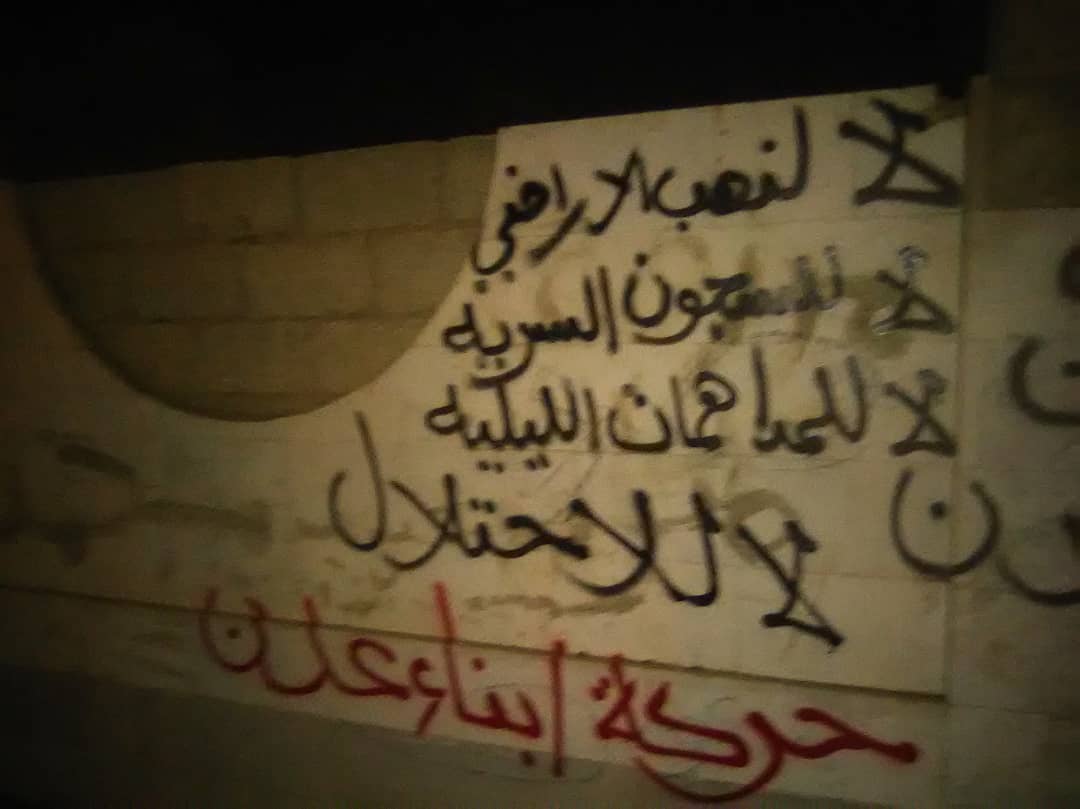 لا لنهب الاراضي
لا للسجون السرية
لا للمداهمات الليلية
لا للاحتلال
حركة ابناء عدن